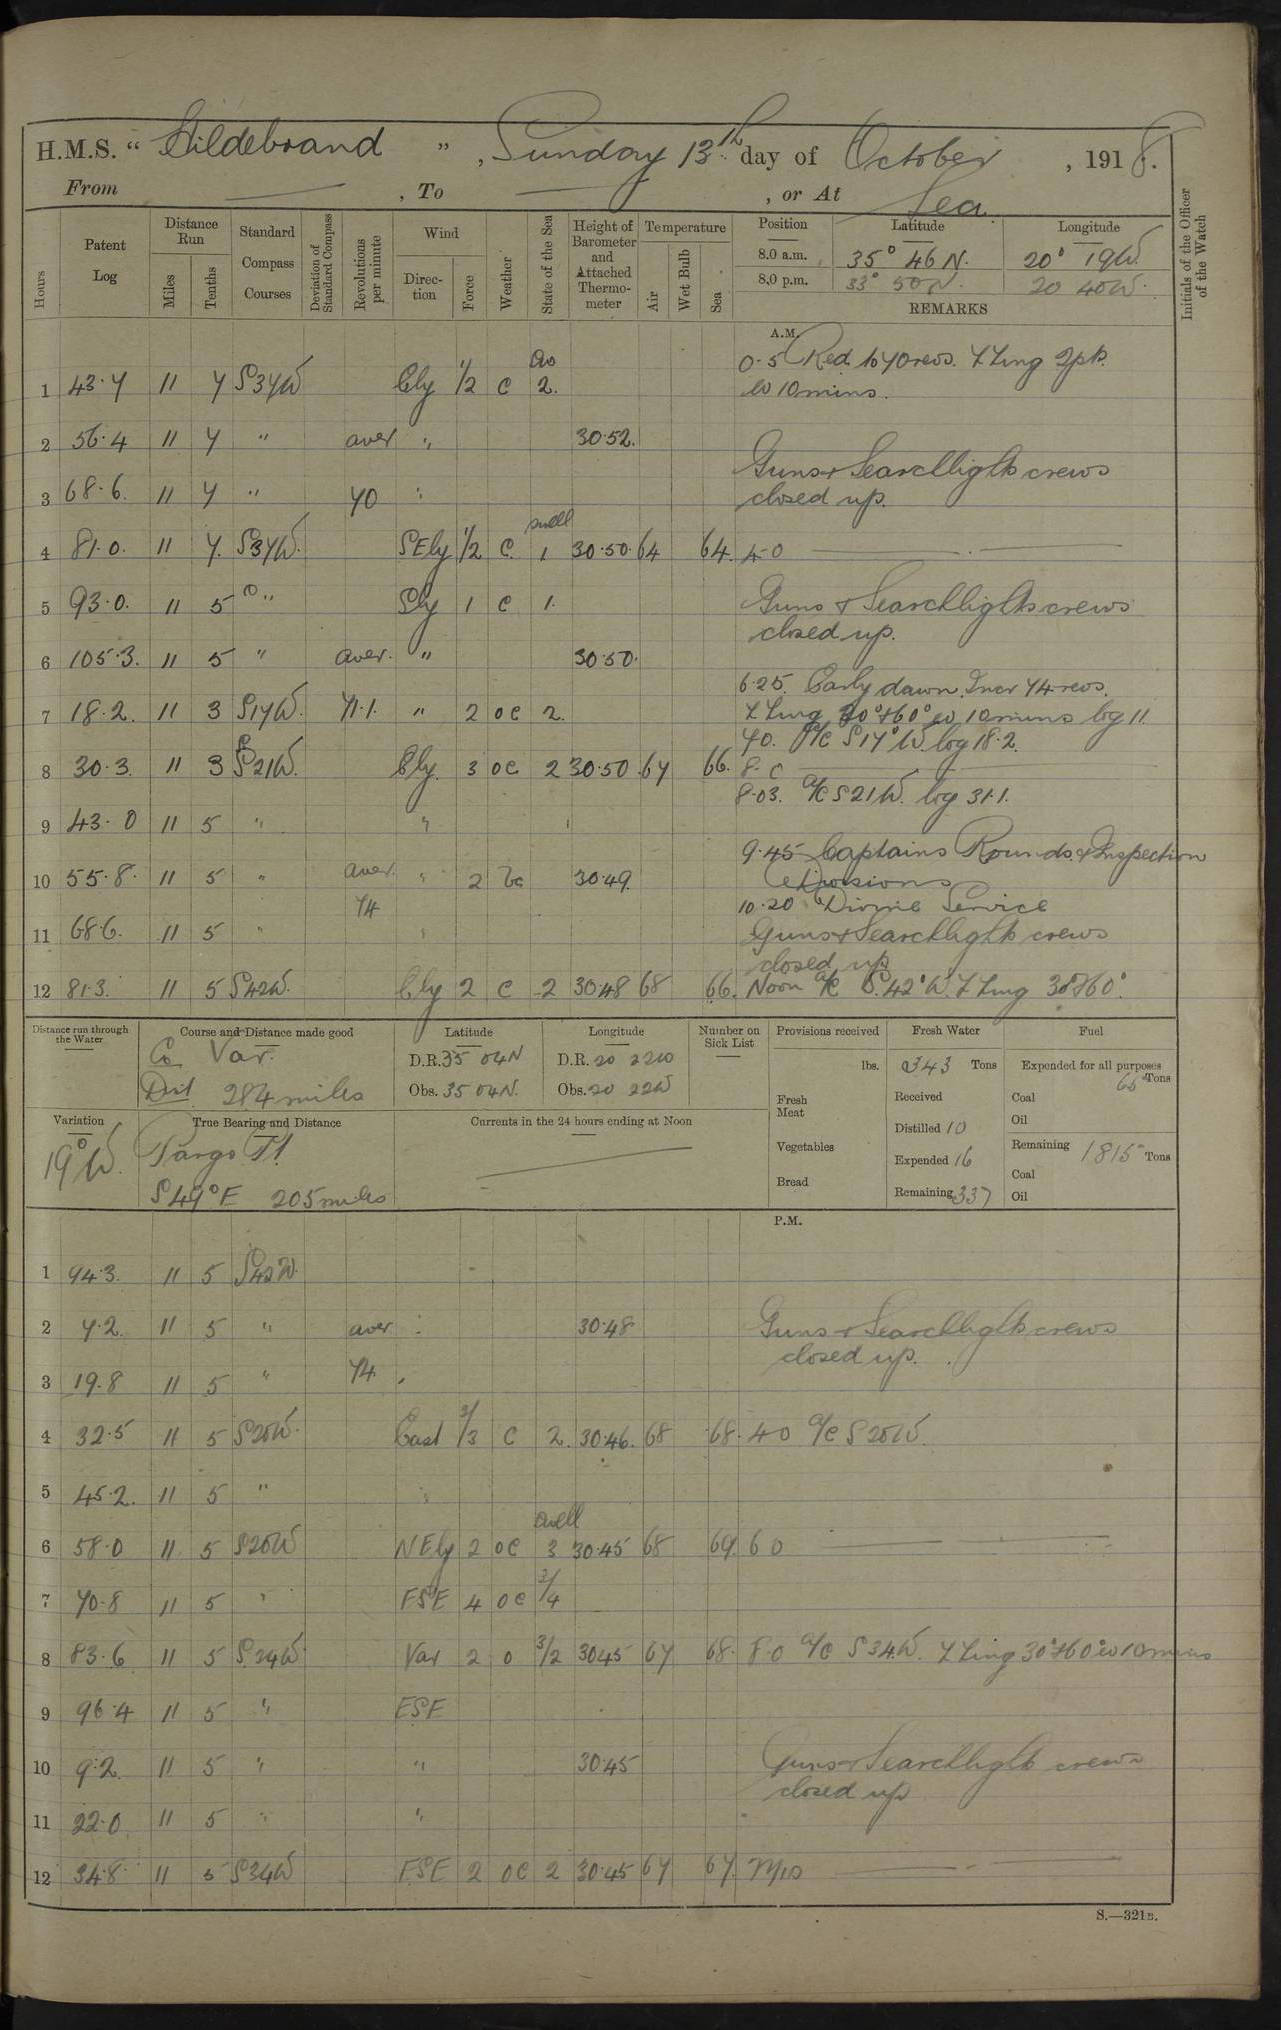 H.M.S. " Hildebrand ", Sunday 13th day of October, 1918.
From —, To —, or At Sea.
Hours
Patent Log
Distance Run
Miles
Tenths
Standard Compass Courses
Deviation of Standard Compass
Revolutions per minute
Wind
Direction
Force
Weather
State of the Sea
Height of Barometer and Attached Thermometer
Temperature
Air
Wet Bulb
Sea
Position Latitude Longitude
8.0 a.m. 35° 46 N. 20° 19 W.
8.0 p.m. 33° 50 N. 20 40 W.
REMARKS
Initials of the Officer of the Watch
A.M.
0.5 Red. to 70 revs. Z Zing 2pts.
ev 10 mins.
1 43.7 11 7 S37W Ely 1/2 c 2.
2 56.4 11 7 " aver " 30.52.
Guns & Searchlights crews
3 68.6. 11 7 " 70 " closed up.
swell
4 81.0. 11 7. S37W. SEly 1/2 c. 1 30.50. 64 64. 4.0
5 93.0. 11 5 " Sly 1 c 1. Guns & Searchlights crews
closed up.
6 105.3. 11 5 " aver. " 30.50.
6.25. Early dawn. Incr 74 revs.
7 18.2. 11 3 S17W. 71.1. " 2 oc 2. Z Zing 30°+60° ev 10 mins log 11.
7.0. A/C S17°W log 18.2.
8 30.3. 11 3 S21W. Ely. 3 oc 2 30.50 67 66. 8.0
8.03. A/C S21W. log 31.1.
9 43.0 11 5 " "
9.45 Captains Rounds & Inspection
10 55.8. 11 5 " aver. " 2 bc 30.49. Divisions
74 10.20 Divine Service
11 68.6. 11 5 " " Guns & Searchlights crews
closed up
12 81.3. 11 5 S42W. Ely 2 c 2 30.48 68 66. Noon A/C S.42°W. Z Zing 30°+60°.
Distance run through the Water
Course and Distance made good
Co Var.
Dist 284 miles
Latitude
D.R. 35 04N
Obs. 35 04N.
Longitude
D.R. 20 22W
Obs. 20 22W
Number on Sick List
Provisions received
lbs.
Fresh Meat
Vegetables
Bread
Fresh Water
343 Tons
Received
Distilled 10
Expended 16
Remaining 337
Fuel
Expended for all purposes
65 Tons
Coal
Oil
Remaining 1815 Tons
Coal
Oil
Variation
19°W.
True Bearing and Distance
Pargo Pt.
S49°E 205 miles
Currents in the 24 hours ending at Noon
P.M.
1 94.3. 11 5 S42W.
2 7.2. 11 5 " aver " 30.48 Guns & Searchlights crews
closed up.
3 19.8 11 5 " 74 "
4 32.5 11 5 S20W. East 3/3 c 2. 30.46. 68 68. 4.0 A/C S20W.
5 45.2. 11 5 " "
swell
6 58.0 11 5 S20W NEly 2 oc 3 30.45 68 69. 6.0
7 70.8 11 5 " ESE 4 oc 3/4
8 83.6 11 5 S.20W. Var 2 o 3/2 30.45 67 68. 8.0 A/C S34W. Z Zing 30°+60° ev 10 mins
9 96.4 11 5 " ESE
10 9.2. 11 5 " " 30.45 Guns & Searchlight crews
closed up
11 22.0 11 5 " "
12 34.8. 11 5 S34W ESE 2 oc 2 30.45 67 67. M/n
S.—321B.